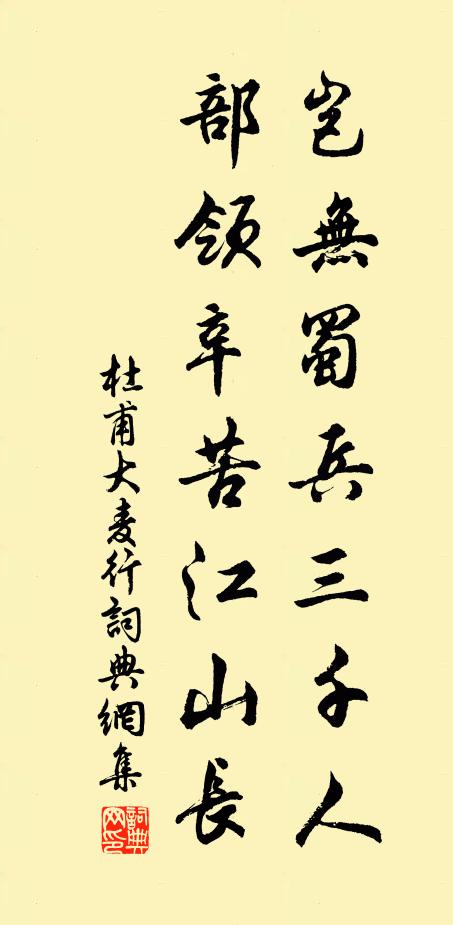 豈無蜀兵三千人
部領辛苦江山長
杜甫大麦行詞典網集
詞典网印